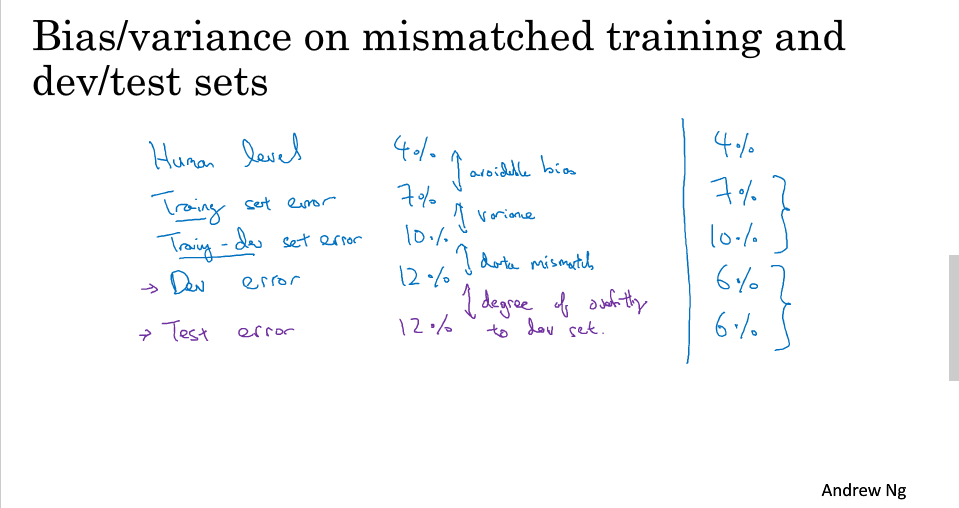 Bias/variance on mismatched training and
dev/test sets
Human level 4% 4%
avoidable bias
Traing set error 7% 7%
variance
Traing-dev set error 10% 10%
data mismatch
→ Dev error 12% 6%
degree of overfitting
→ Test error 12% to dev set. 6%
Andrew Ng